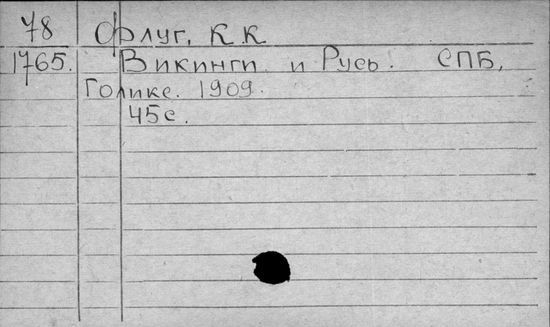 78 Флуг, К.К
1765. Викинги и Русь. СПБ,
Голике. 1909.
45с.